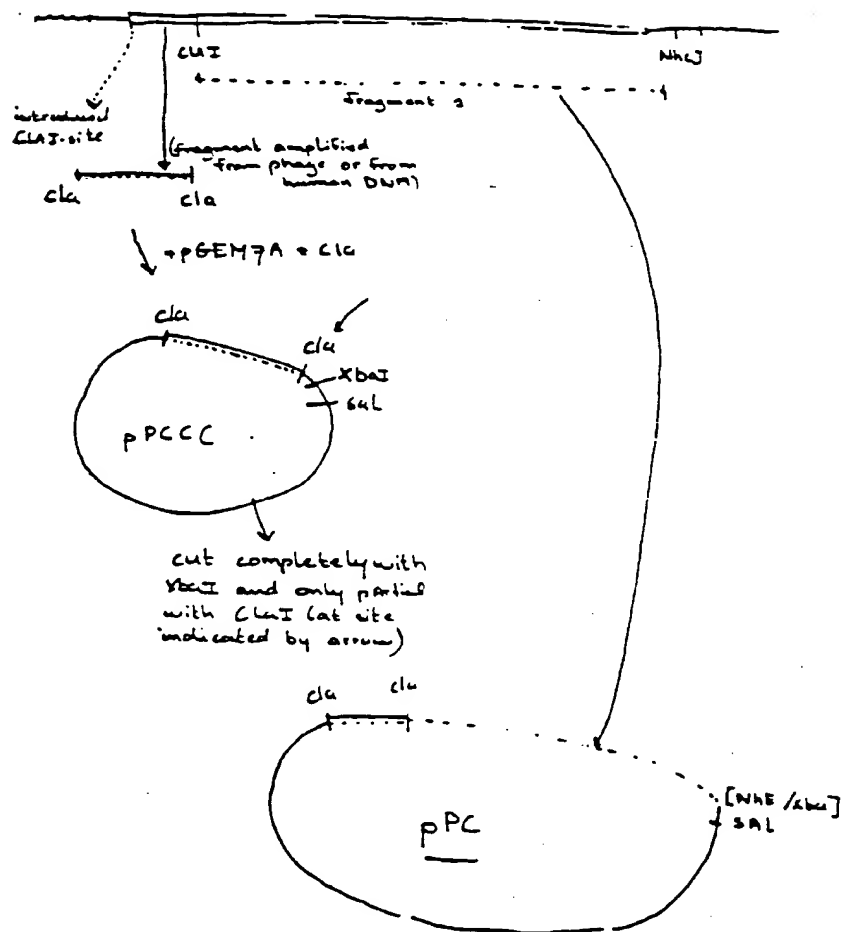 CLAI
NheI
fragment 2
introduced
CLAI-site
(fragment amplified
from phage or from
human DNA)
cla
cla
+pGEM7A + Cla
cla
cla
XbaI
sal
pPCCC
cut completely with
XbaI and only partial
with ClaI (at site
indicated by arrow)
cla
cla
[NhE/xba]
SAL
pPC